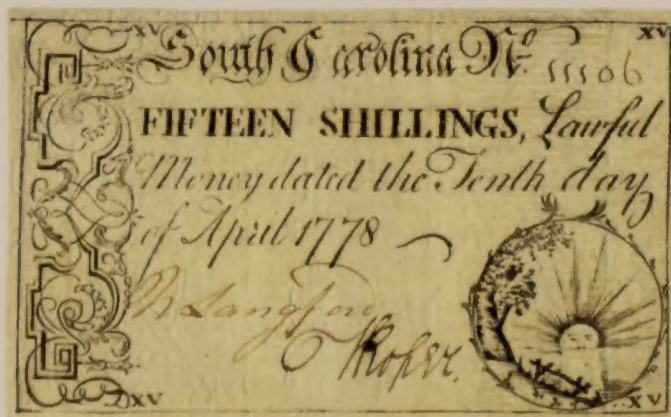 XV XV
South Carolina No. 11106
FIFTEEN SHILLINGS, Lawful
Money dated the Tenth day
of April 1778
Langford
T Roper.
XV XV